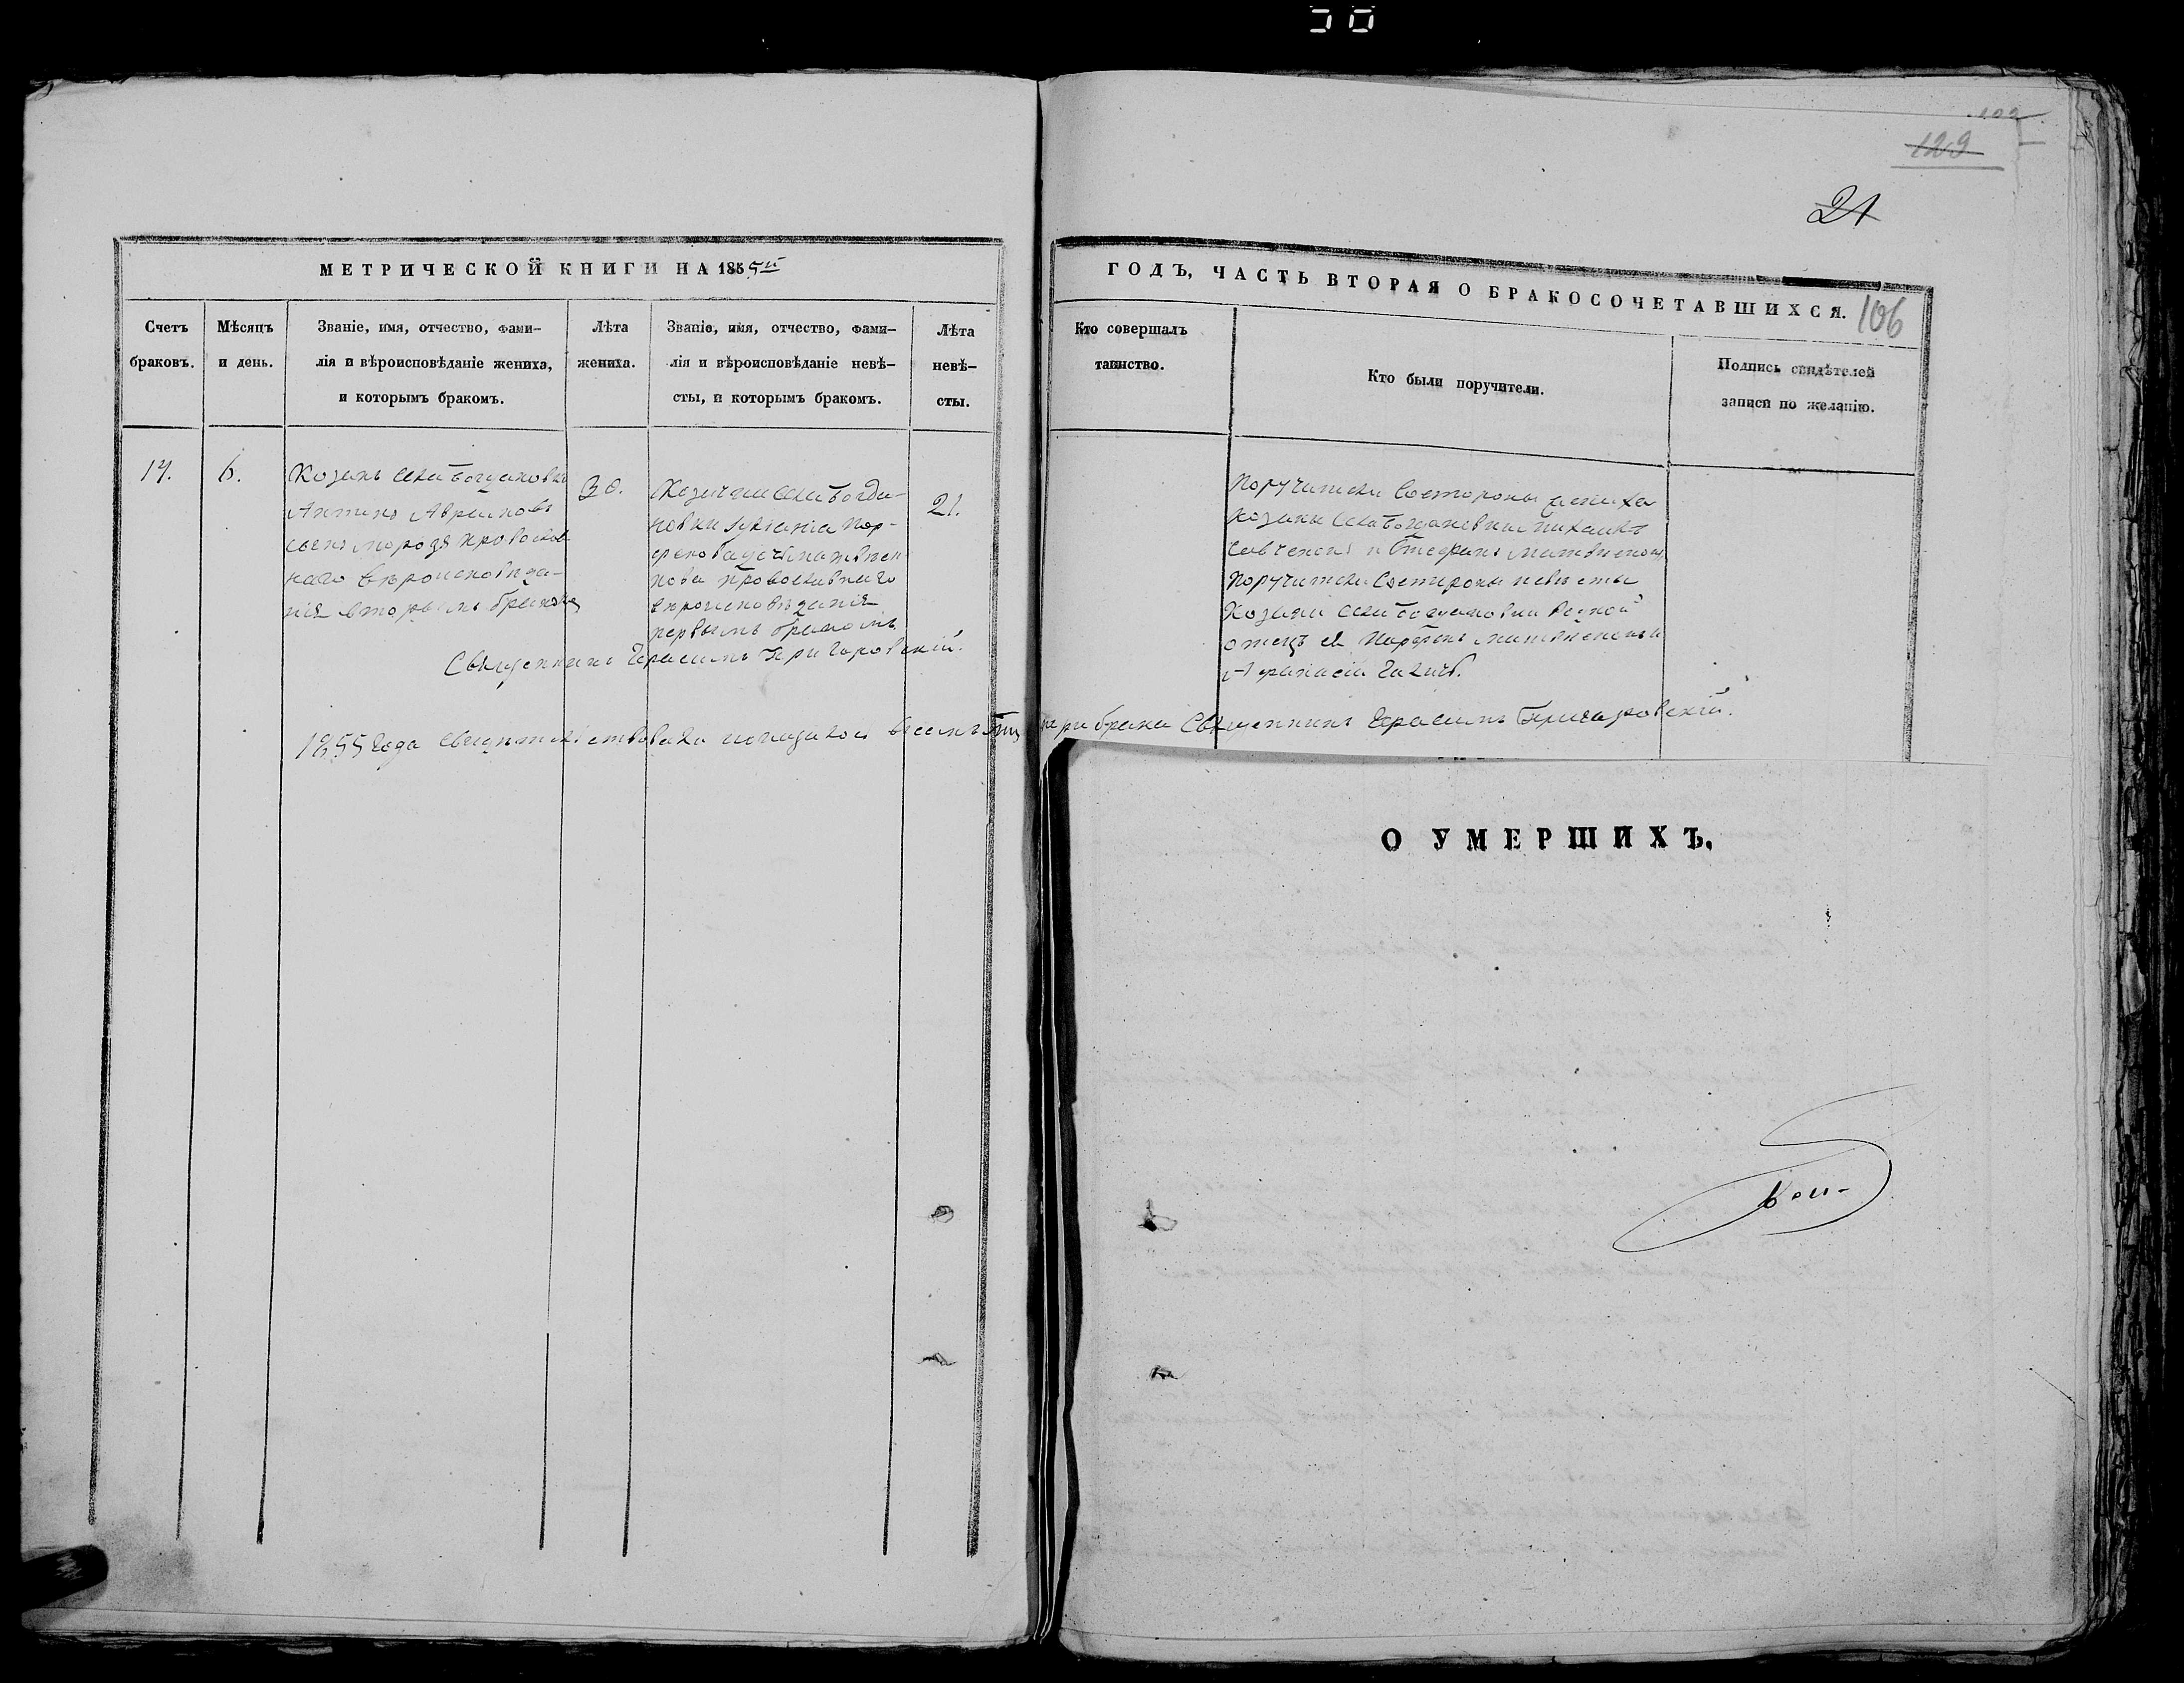 102
129
21
МЕТРИЧЕСКОЙ КНИГИ НА 1855й
ГОДЪ, ЧАСТЬ ВТОРАЯ О БРАКОСОЧЕТАВШИХСЯ.
106
Счетъ
браковъ.
Мѣсяцъ
и день.
Званіе, имя, отчество, фами-
лія и вѣроисповѣданіе жениха,
и которымъ бракомъ.
Лѣта
жениха.
Званіе, имя, отчество, фами-
лія и вѣроисповѣданіе невѣ-
сты, и которымъ бракомъ.
Лѣта
невѣ-
сты.
Кто совершалъ
таинство.
Кто были поручители.
Подпись свидѣтелей
записи по желанію.
6.
Козакъ села Богдановки
Антинъ Авраамовъ
сынъ Мороза Православ
наго вѣроисповѣда-
нія вторымъ бракомъ
30.
Козачка села Богда-
новки
дочь Матвѣен
кова Православнаго
вѣроисповѣданія
первымъ бракомъ
21.
Священникъ Герасимъ Григоровскій.
Поручители Состороны жениха
Козаки села Богдановки Михаилъ
Савченко и Стефанъ Матвѣенко
Поручители Состороны невѣсты
Козаки села Богдановки Родной
отецъ ея Парфенъ Матвѣенко и
Афанасій
1855 года свидѣтельствовалъ при браки Священникъ Герасимъ Григоровскій.
О УМЕРШИХЪ.